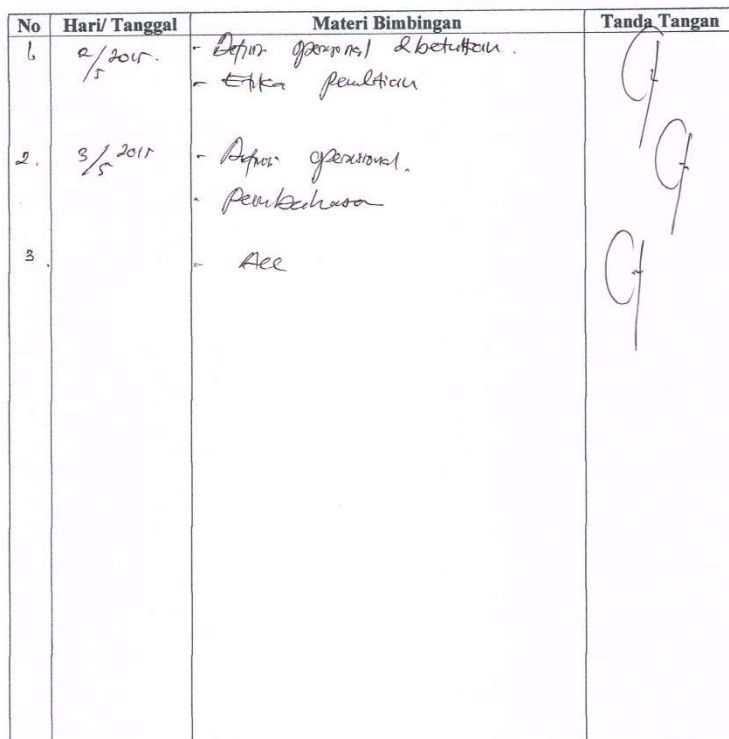 No Hari/ Tanggal Materi Bimbingan Tanda Tangan
1 2/5 2015. - Defini operasional dbetulkan.
- Etika penelitian
2. 3/5 2015 - Defini operasional.
- Pembahasan
3. - Acc